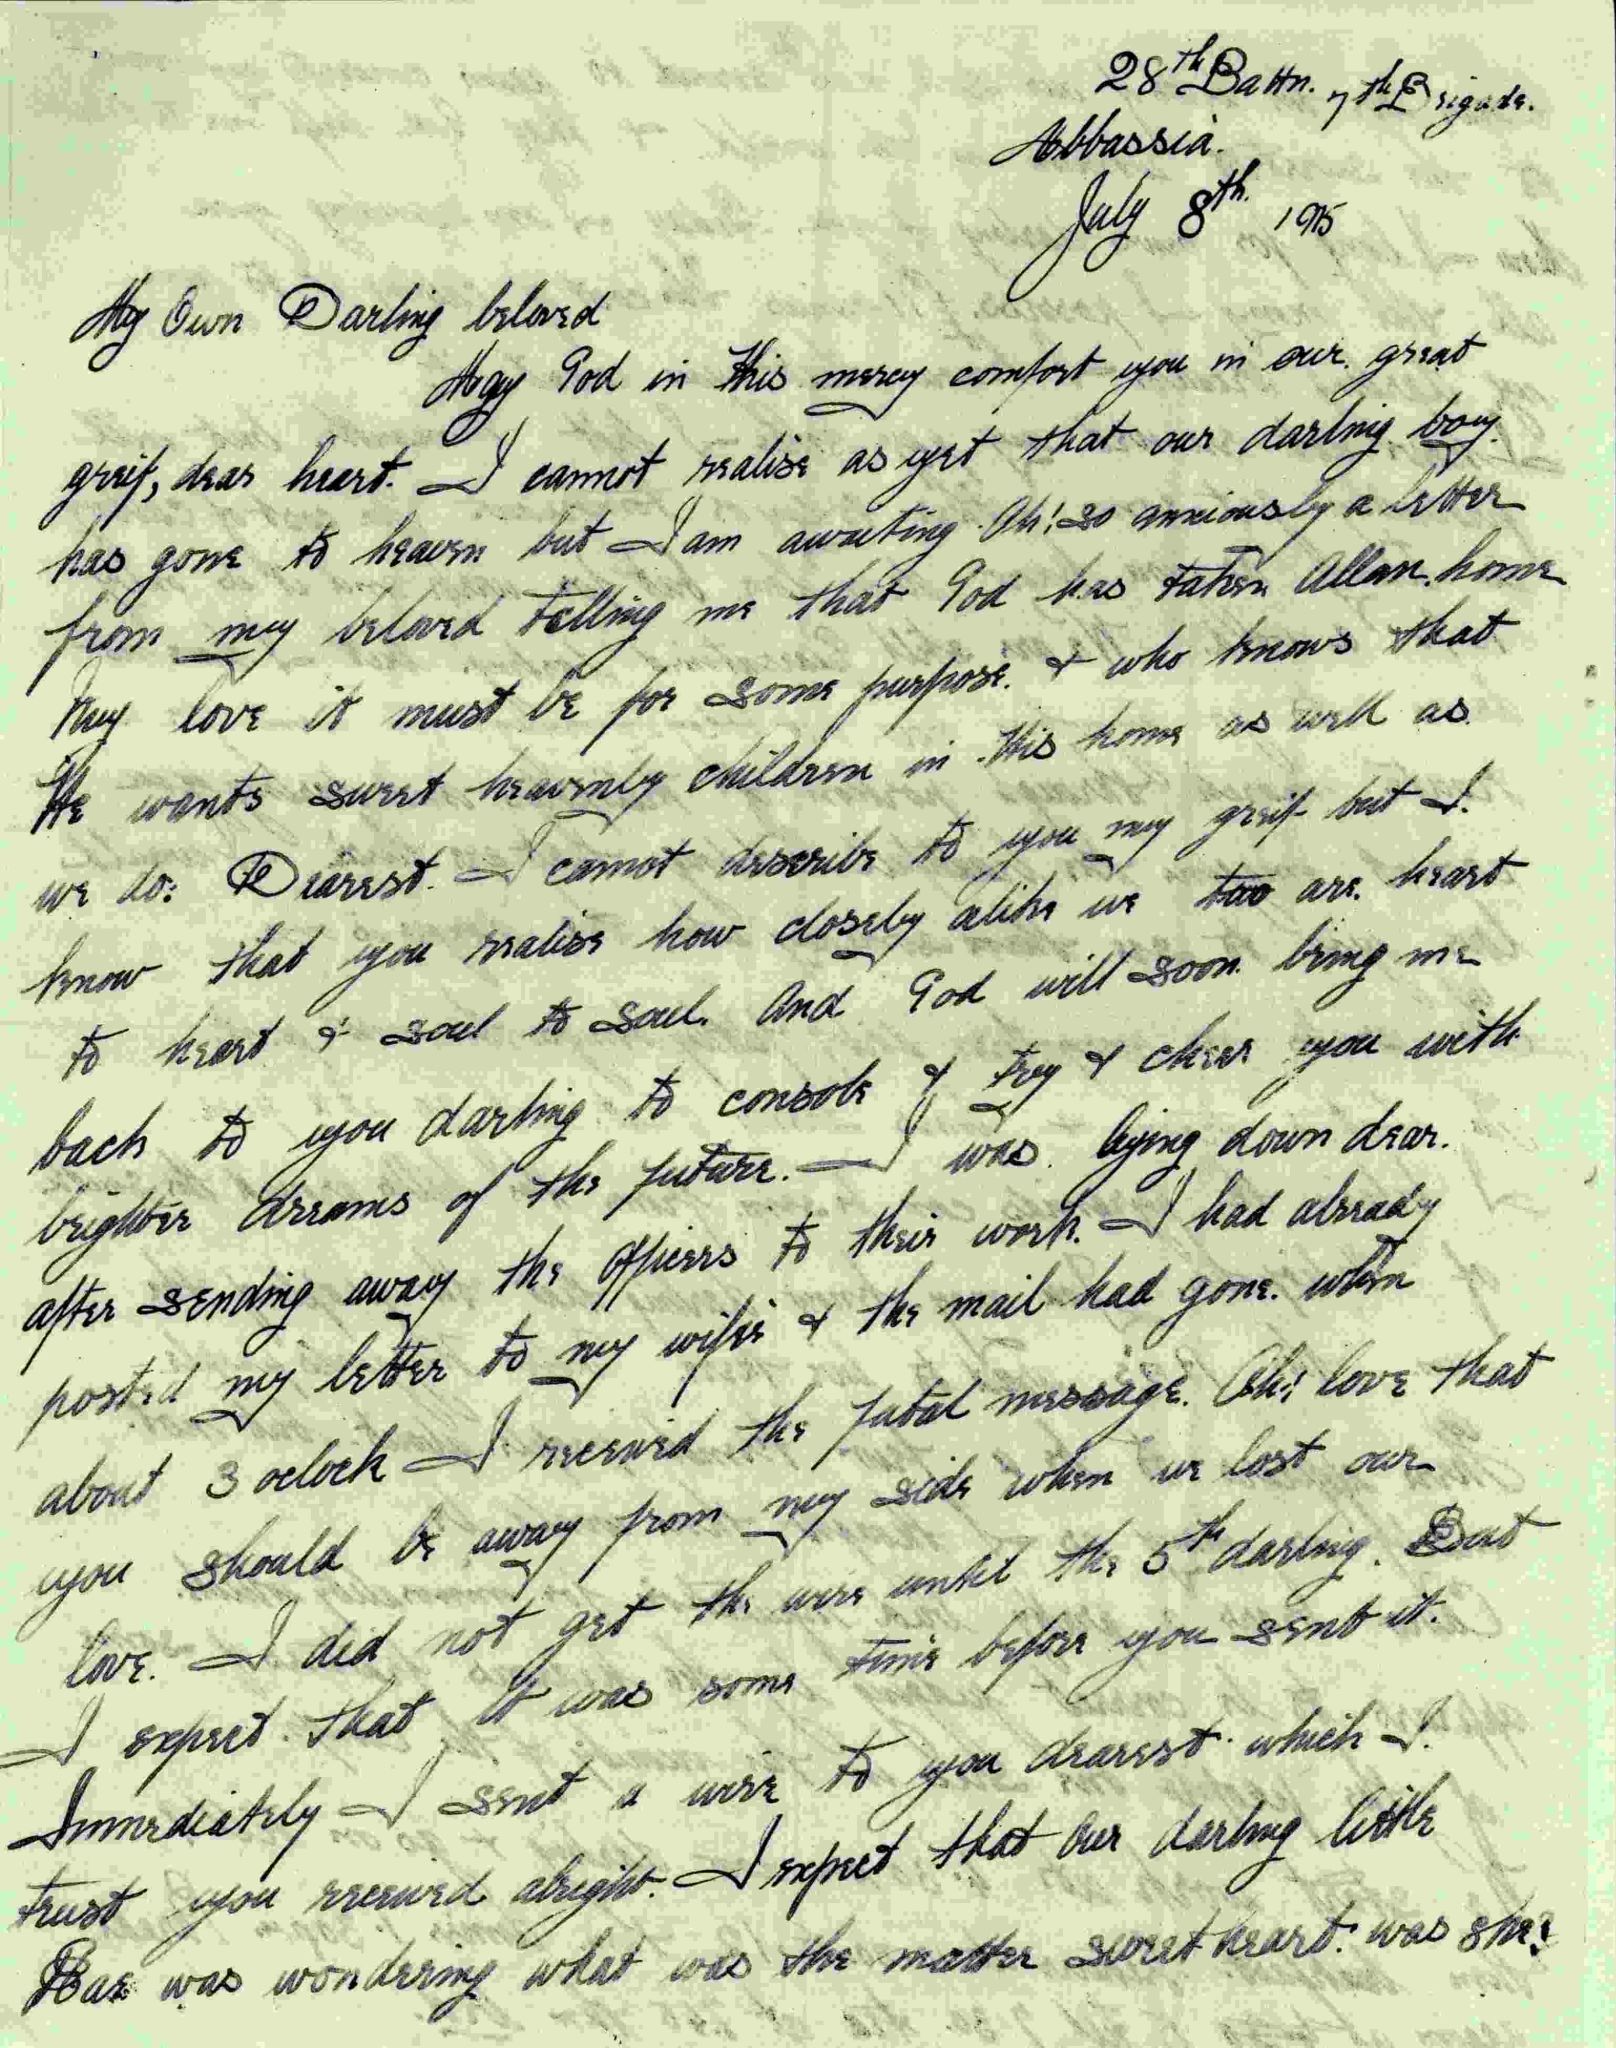 28th Battn. 7th Brigade.
Abbassia.
July 8th. 1915
My Own Darling beloved
May God in His mercy comfort you in our great
greif, dear heart. I cannot realise as yet that our darling boy.
has gone to heaven but I am awaiting. Oh! so anxiously a letter
from my beloved telling me that God has taken Allan. home
My love it must be for some purpose. & who knows that
He wants sweet heavenly children in His home as well as
we do: Dearest. I cannot describe to you my greif but I.
know that you realise how closely alike we two are. heart
to heart & soul to soul. And God will soon bring me
back to you darling to console & try & cheer you with
brighter dreams of the future. I was. lying down dear.
after sending away the officers to their work. I had already
posted my letter to my wifie & the mail had gone. when
about 3 oclock I received the fatal message. Oh! love that
you should be away from my side when we lost our
love. I did not get the wire until the 5th darling. But
I expect that it was some time before you sent it.
Immediately I sent a wire to you dearest which I.
trust you received alright. I expect that our darling little
Rae was wondering what was the matter sweetheart. was she?